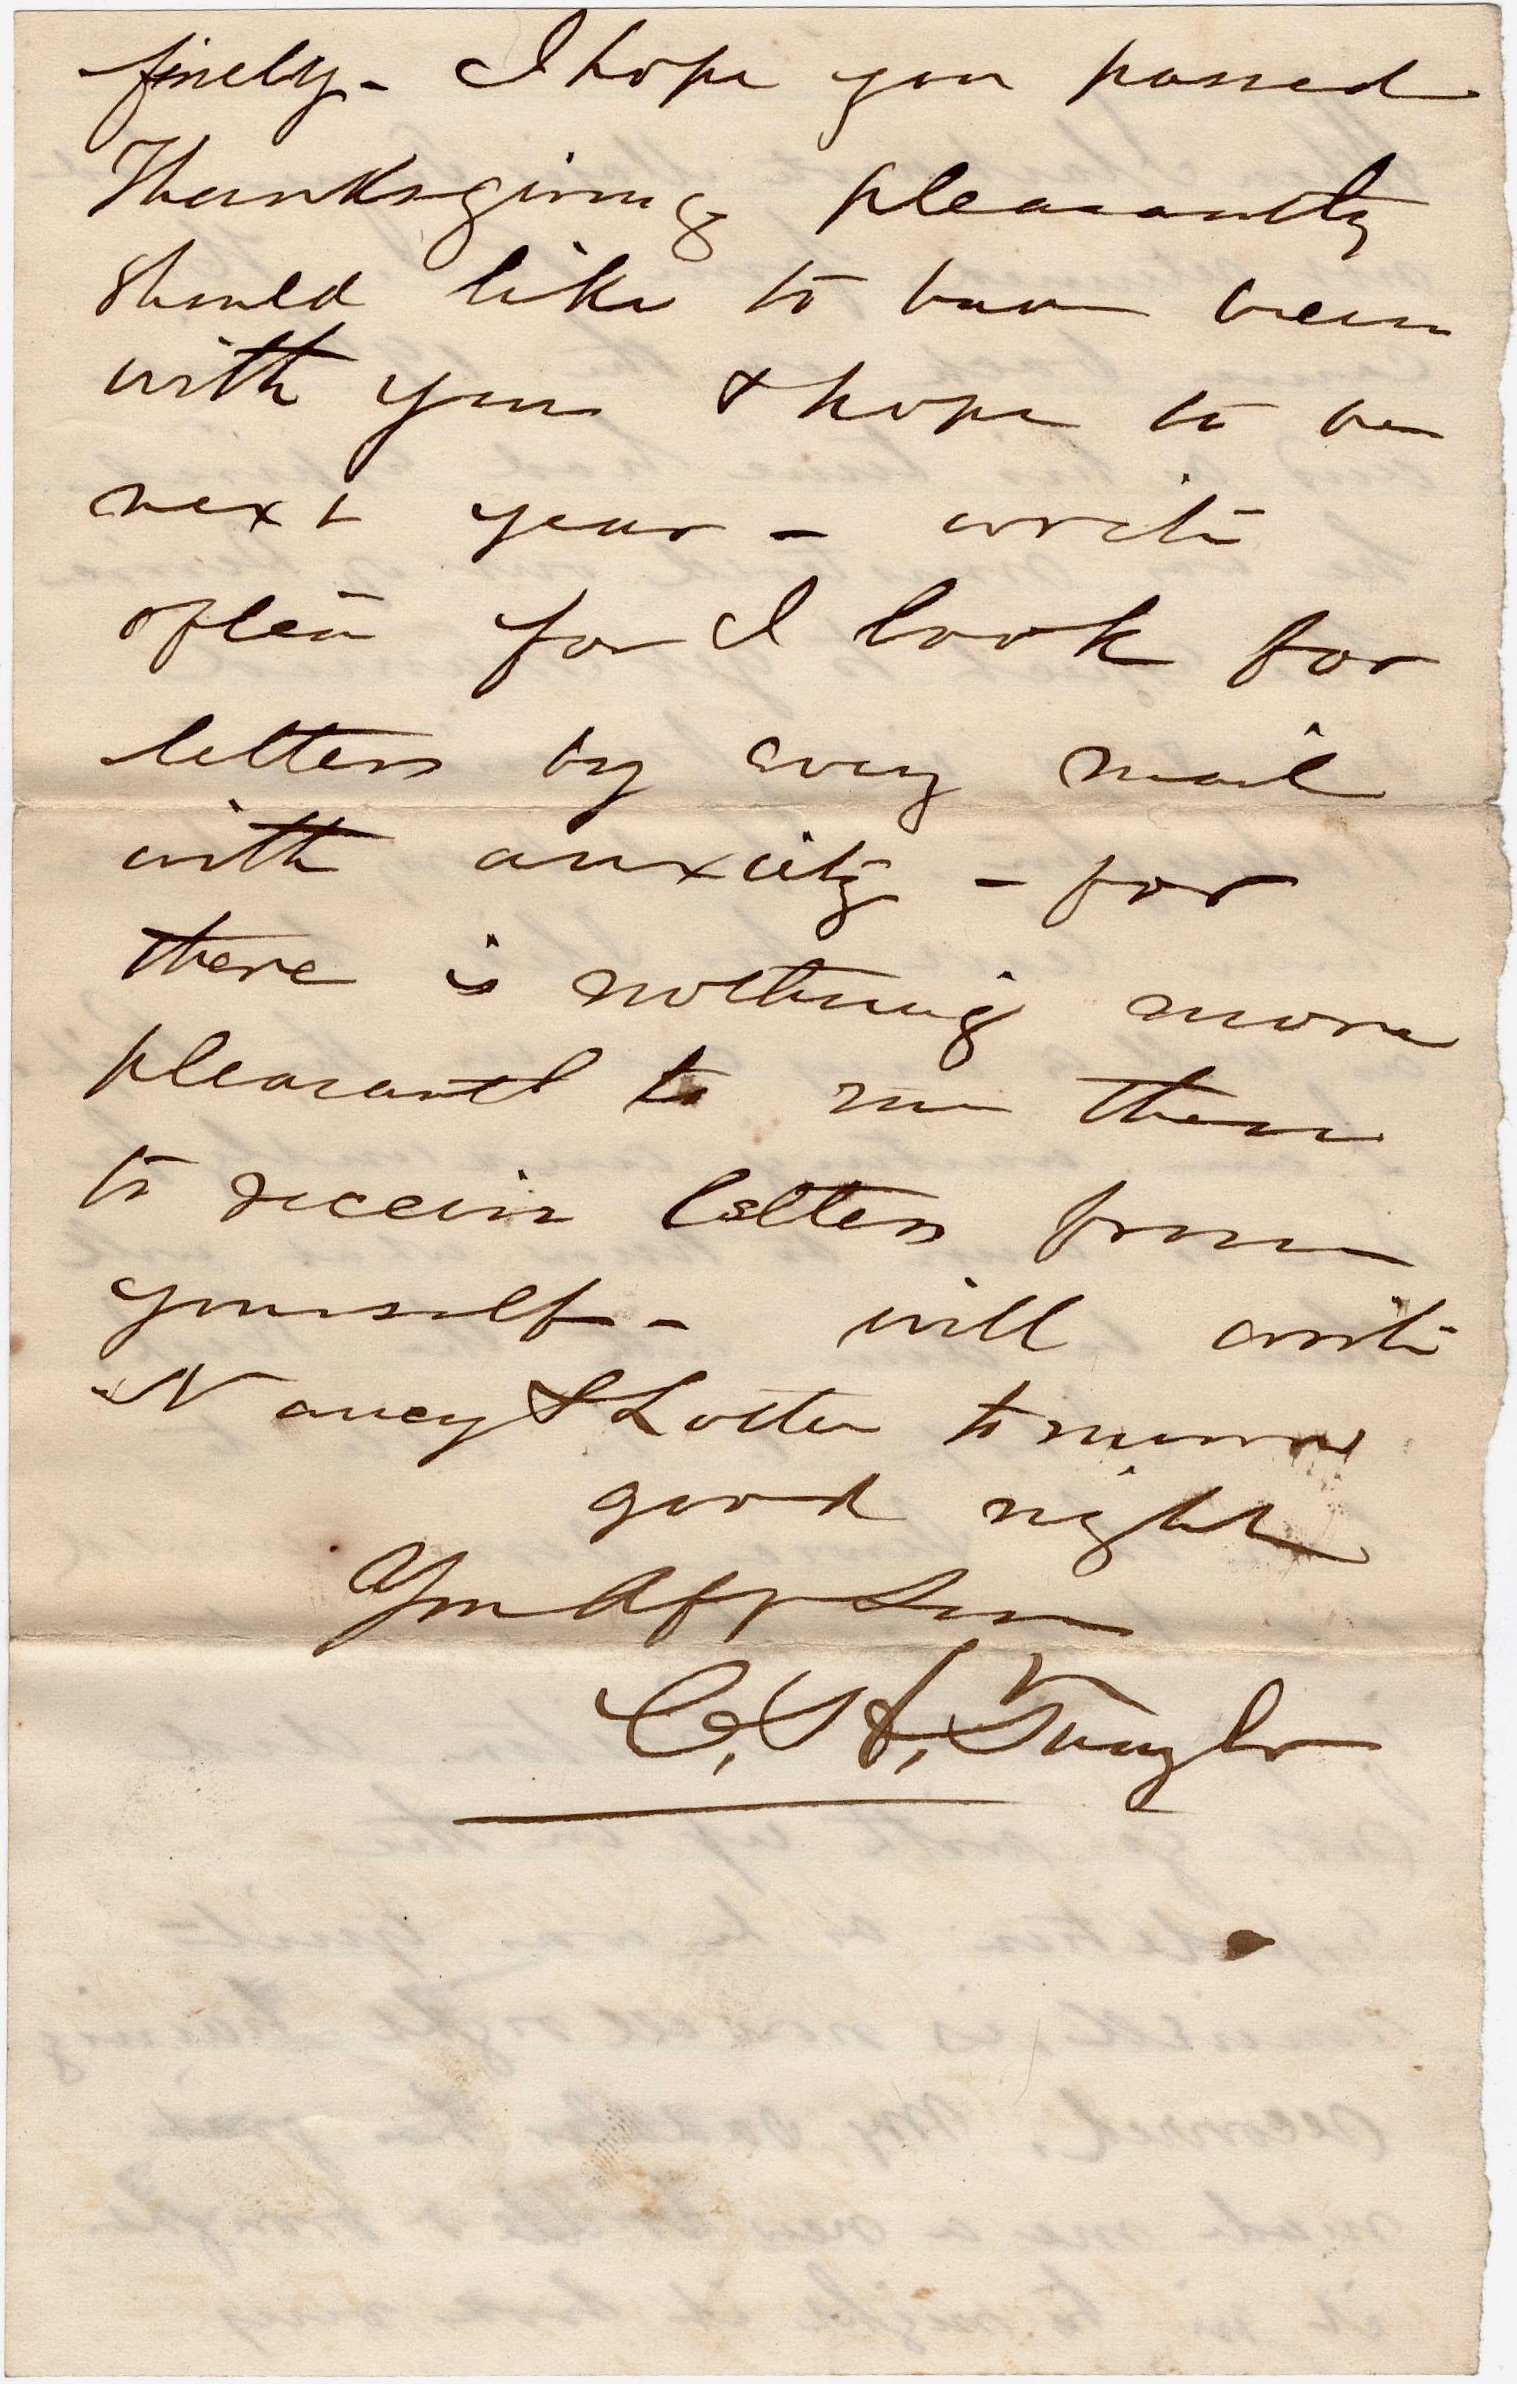 finely - I hope you passed
Thanksgiving pleasantly
should like to have been
with you & hope to be
next year - write
often for I look for
letters by every mail
with anxiety - for
there is nothing more
pleasant to me then
to receive letters from
yourself - will write
Nancy & Lottie tomorrow
good night
Your Aff Son
C.